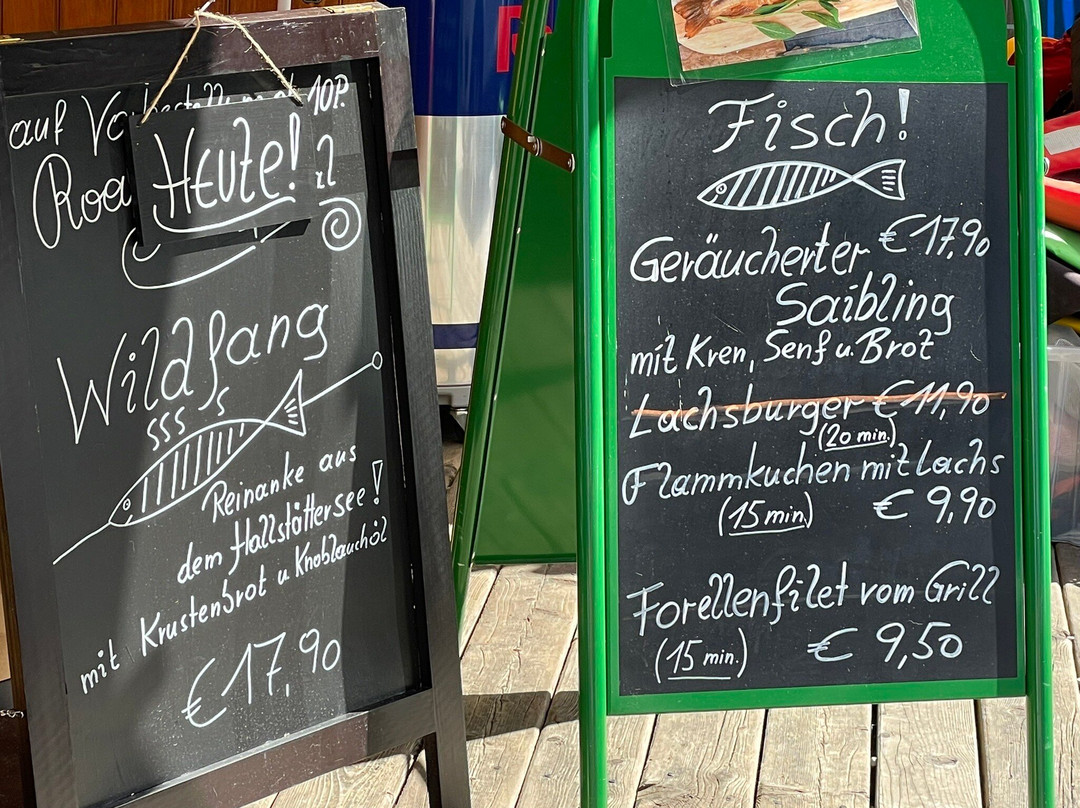 auf
10P.
Heute!
Wildfang
Reinanke aus
dem Hallstättersee!
mit Krustenbrot u Knoblauchöl
€ 17,90
Fisch!
Geräucherter € 17,90
Saibling
mit Kren, Senf u. Brot
Lachsburger € 11,90
(20 min.)
Flammkuchen mit Lachs
(15 min.) € 9,90
Forellenfilet vom Grill
(15 min.) € 9,50